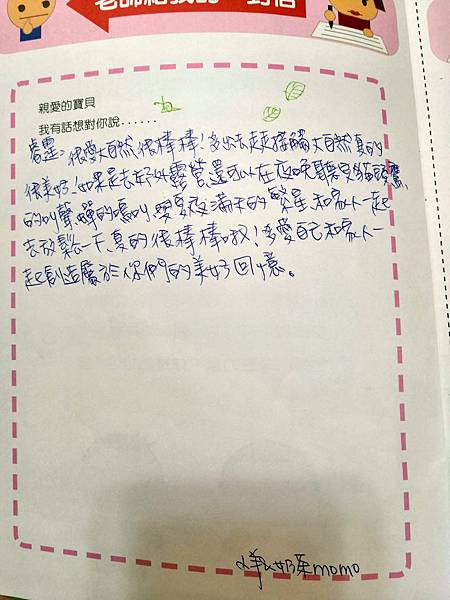 老師給我的一封信
親愛的寶貝
我有話想對你說......
睿霆:很愛大自然很棒棒!多出去走走接觸大自然真的
很美好!如果是去野外露營還可以在夜晚聽見貓頭鷹
的叫聲、蟬的鳴叫、夏夜滿天的繁星,和家人一起
去放鬆一下真的很棒棒呦!多愛自己和家人一
起創造屬於你們的美好回憶。
momo